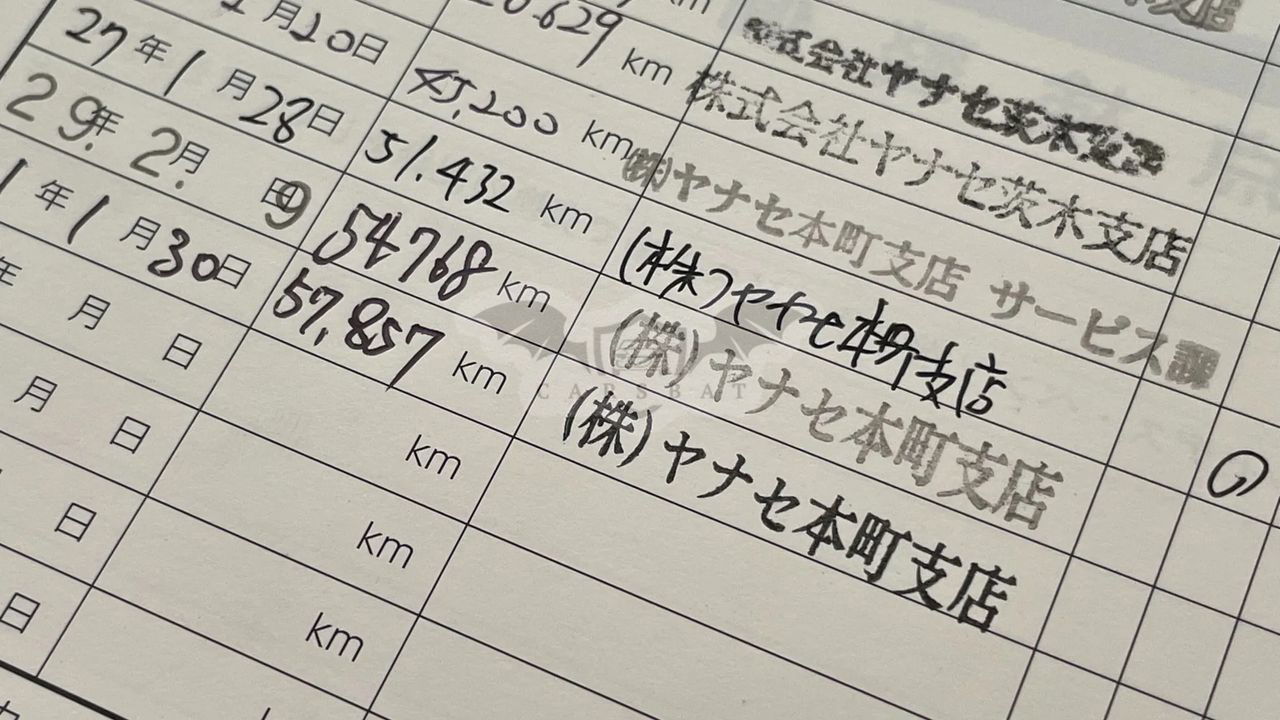 km 式会社ヤナセ茨木支店
0.629 km 株式会社ヤナセ茨木支店
1月20日 45,200 km (株)ヤナセ本町支店 サービス課
27年1月28日 51.432 km (株)ヤナセ本町支店
29年2月9日 54768 km (株)ヤナセ本町支店
1年1月30日 57,857 km (株)ヤナセ本町支店
年 月 日 km
月 日 km
日 km
日
CARSBAT